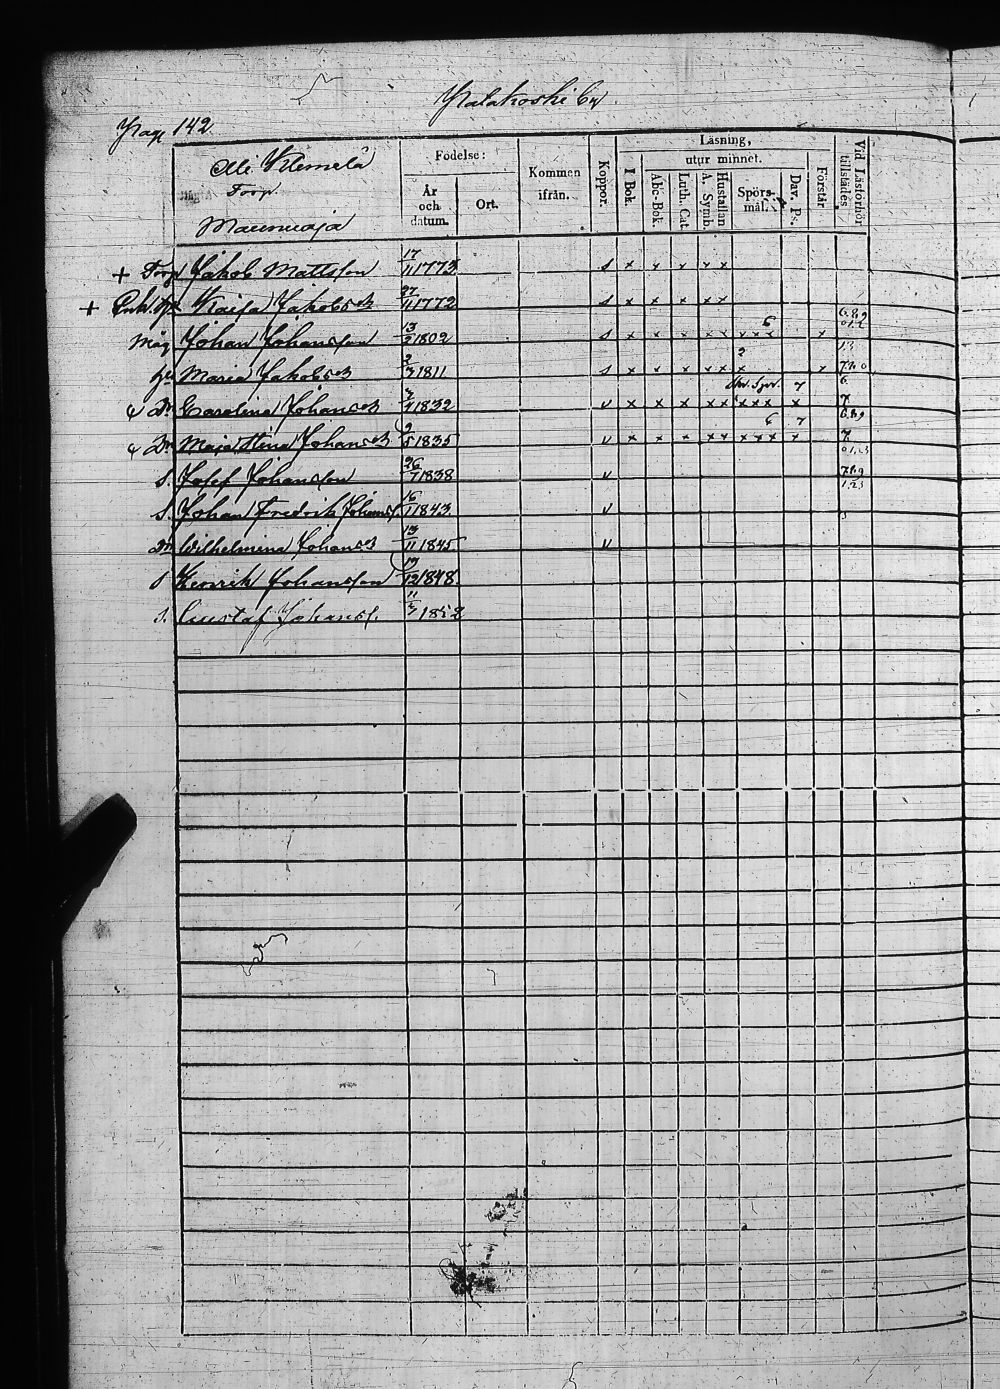 Palakoski by.
Pag. 142
Olle Klemelä
Torp
Maunuaja
Födelse:
År och datum.
Ort.
Kommen ifrån.
Koppor.
Läsning,
utur minnet.
I Bok.
Abc-Bok.
Luth. Cat.
Hustaflan A. Symb.
Spörs- mål.
Dav. Ps.
Förstår
Vid Läsförhör tillstädes
+ Torp Jakob Mattsson 17/11 1773 s x x x x x
+ Kaisa Jakobsd 27/11 1772 s x x x x x
Måg Johan Johansson 13/2 1802 s x x x x x x x x x
hu Maria Jakobsd 2/3 1811 s x x x x x x x
Dr Carolina Johansd 1832 v x x x x x x x x x
Dr Maja Stina Johansd 2/5 1835 v x x x x x x x x x
S. Josef Johansson 26/7 1838 v
S. Johan Fredrik Johanss 16/1 1843 v
Dr Wilhelmina Johansd 13/11 1845 v
S Henrik Johansson 19/12 1848
S. Gustaf Johanss. 11/3 1852